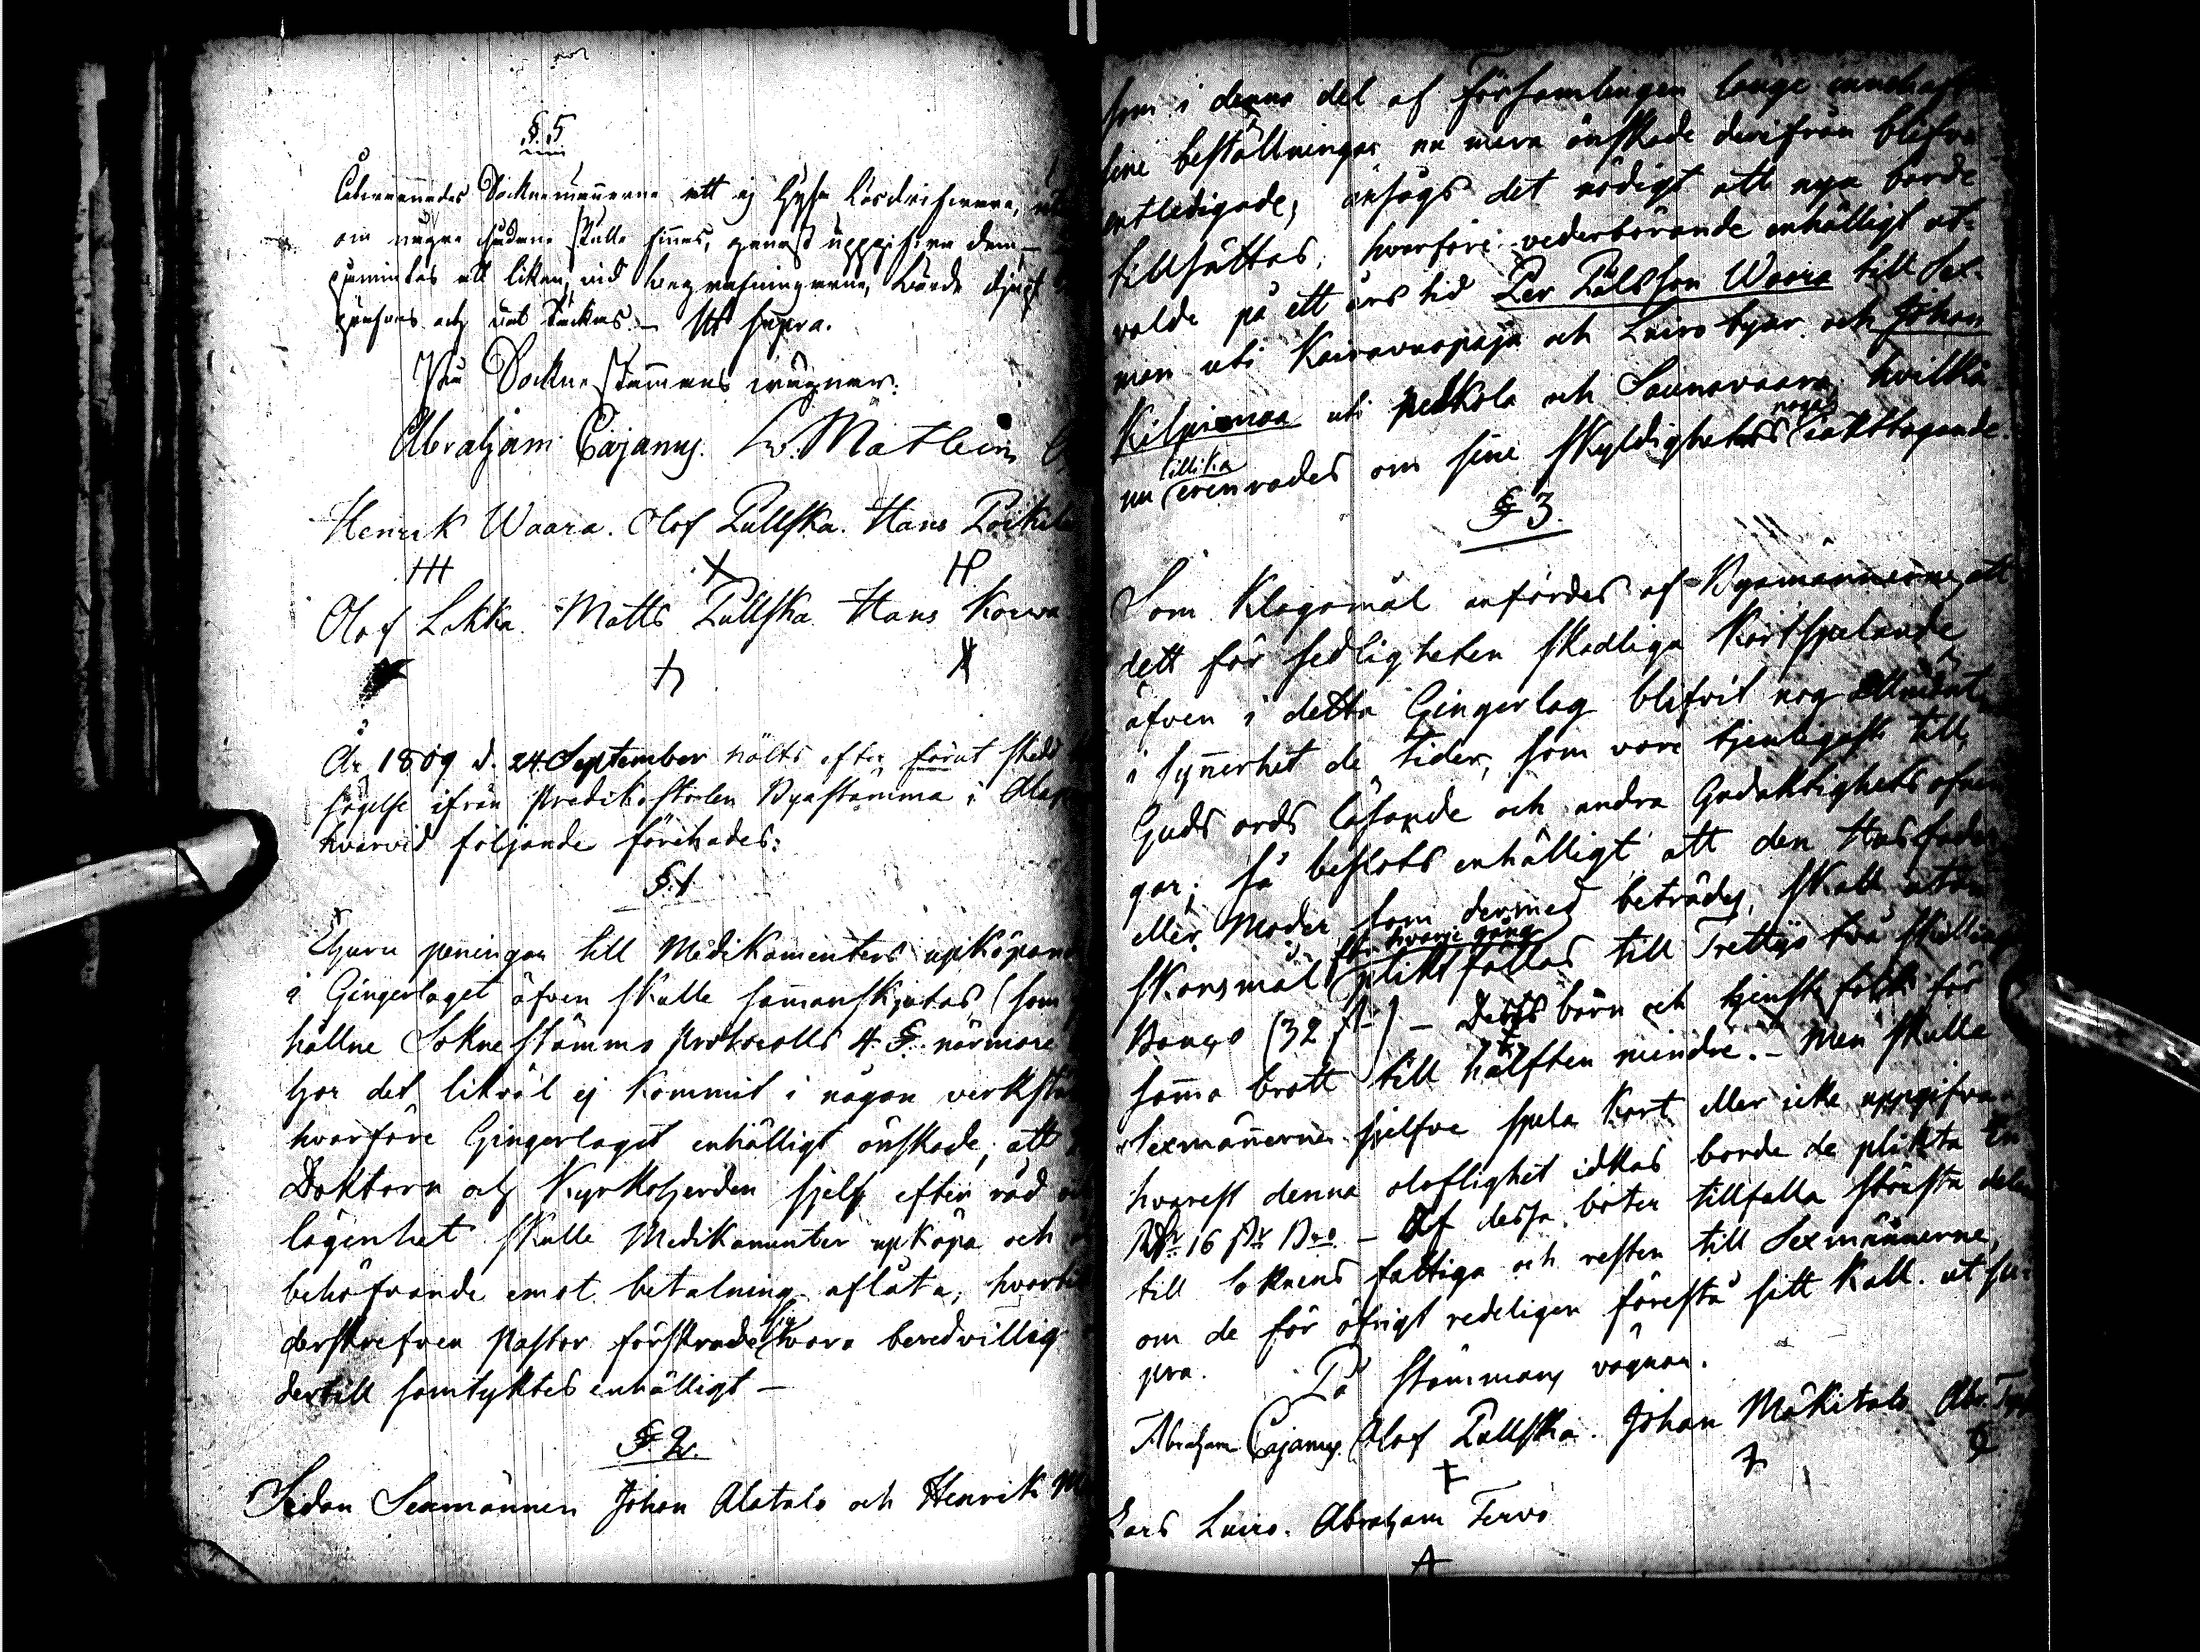 §. 5
Socknemännerne att ej hysa Lösdrifvare, utan
om någre sådane skulle finnas, genast uppgifva dem, —
påmintes att liken, vid begrafningarne, borde djupt
och väl täckas. — Ut supra.
På Sockne stämmans vägnar:
Abraham Cajanus.
Henrik Waara. Olof Pullska. Hans
Olof Lakka. Matts Pullska. Hans
År 1809 d. 24 September hölts efter förut skedd
ifrån Predikostolen Byastämma i
hvarvid följande förehades:
§. 1
Ehuru peningar till Medikamenters upköpand
i Gingerlaget äfven skulle sammanskjutas (som
hållne Sokne stämmo Protocolls 4 §. närmare
har det likväl ej kommit i någon verkstä
hvarföre Gingerlaget enhälligt önskade, att
Doktorn och Kyrkoherden sjelf efter råd
lägenhet skulle Medikamenter upköpa och
behöfvande emot betalning aflåta, hvartill
derskrefven Pastor förklarade sig vara beredvillig
dertill samtyktes enhälligt —
§ 2.
Sedan Sexmännen Johan Alatalo och Henrik
som i denna del af Församlingen länge innehaft
sine beställningar nu mera önskade derifrån blifva
entledigade, ansågs det nödigt att nya borde
tillsättas, hvarföre vederbörande enhälligt ut-
valde på ett års tid Per Pålsson Waara till Sex-
man uti Kairavuopaja och Luiro byar och Johan
Kilpimaa uti Pelkola och Saunavaara, hvilka
nu tillika erinrades om sine skyldigheters noga iakttagande.
§ 3.
Som Klagomål anfördes af Byamännerne, att
dett för sedligheten skadliga Kortspelande
äfven i detta Gingerlag blifvit nog allmänt,
i synnerhet de tider, som vore tjenligast till
Guds ords läsande och andra Gudaktighets öfnin
gar; så beslots enhälligt att den Husfader
eller Moder som dermed beträdes, skall utan
skonsmål för hvarje gång plikt fällas till Trettijo två skilling
Banco (32 s.) — Dess barn och tjenstefolk för
samma brott till hälften mindre. — Men skulle
Sexmännerne sjelfve spela Kort eller icke uppgifva
hvarest denna oloflighet idkas borde de plikta En
Rdr 16 sk Bco — Af dessa böter tillfalla största delen
till Soknens fattiga och resten till Sexmännerne,
om de för öfrigt redeligen förestå sitt Kall. ut su-
pra. På Stämmans vägnar.
Abraham Cajanus. Olof Pullska. Johan Mäkitalo
Lars Luiro. Abraham Tervo